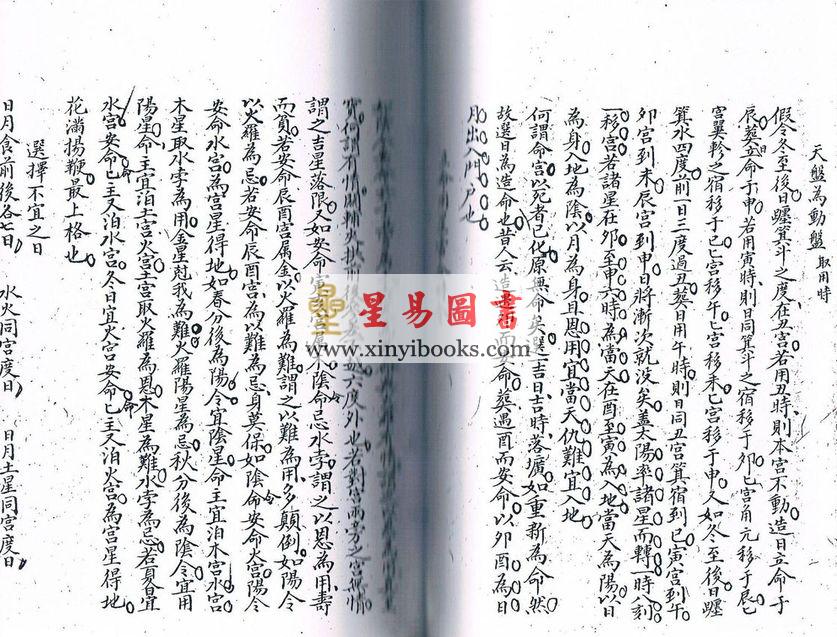 天盤為動盤 取用時
假令冬至後日躔箕斗之度在丑宮若用丑時則本宮不動造日立命于
辰葬立命于申若用寅時則日同箕斗之宿移于卯巳宮角亢移于辰巳
宮翼軫之宿移于巳巳宮移午巳宮移未巳宮移于申又如冬至後日躔
箕水四度前一日三度過丑葬日用午時則日同丑宮箕宿到巳寅宮到午
卯宮到未辰宮到申日將漸次就沒矣蓋太陽率諸星而轉一時刻
一移宮若諸星在卯至申六時為當天在酉至寅為入地當天為陽以日
為身入地為陰以月為身且恩用宜當天仇難宜入地
何謂命宮以死者已化原無命矣選吉日吉時落壙如重新為命然
故選日為造命也昔人云造遇卯而安命葬遇酉而安命以卯酉為日
月出入門戶也
謂之吉星落陷又如安命
而貧若安命辰酉宮属金以火羅為難謂之以難為用多顛倒如陽令
以火羅為忌若安命辰酉宮為以難為忌身莫保如陰令安命火宮陽令
安命水宮為宮星得地如春分後為陽令宜陰星命主宜泊木宮水宮
木星取水孛為用金星尅我為難火羅陽星為忌秋分後為陰令宜用
陽星命主宜泊土宮火宮土宮取火羅為恩木星為難水孛為忌若夏日宜
水宮安命命主又泊水宮冬日宜火宮安命命主又泊火宮為宮星得地
花滿揚鞭最上格也
選擇不宜之日
日月食前後各七日 水火同宮度日 日月土星同宮度日
星易圖書
www.xinyibooks.com